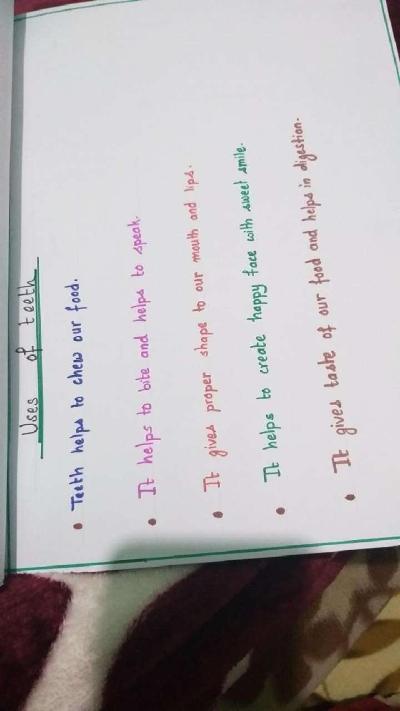 Uses of teeth
• Teeth helps to chew our food.
• It helps to bite and helps to speak.
• It gives proper shape to our mouth and lips.
• It helps to create happy face with sweet smile.
• It gives taste of our food and helps in digestion.